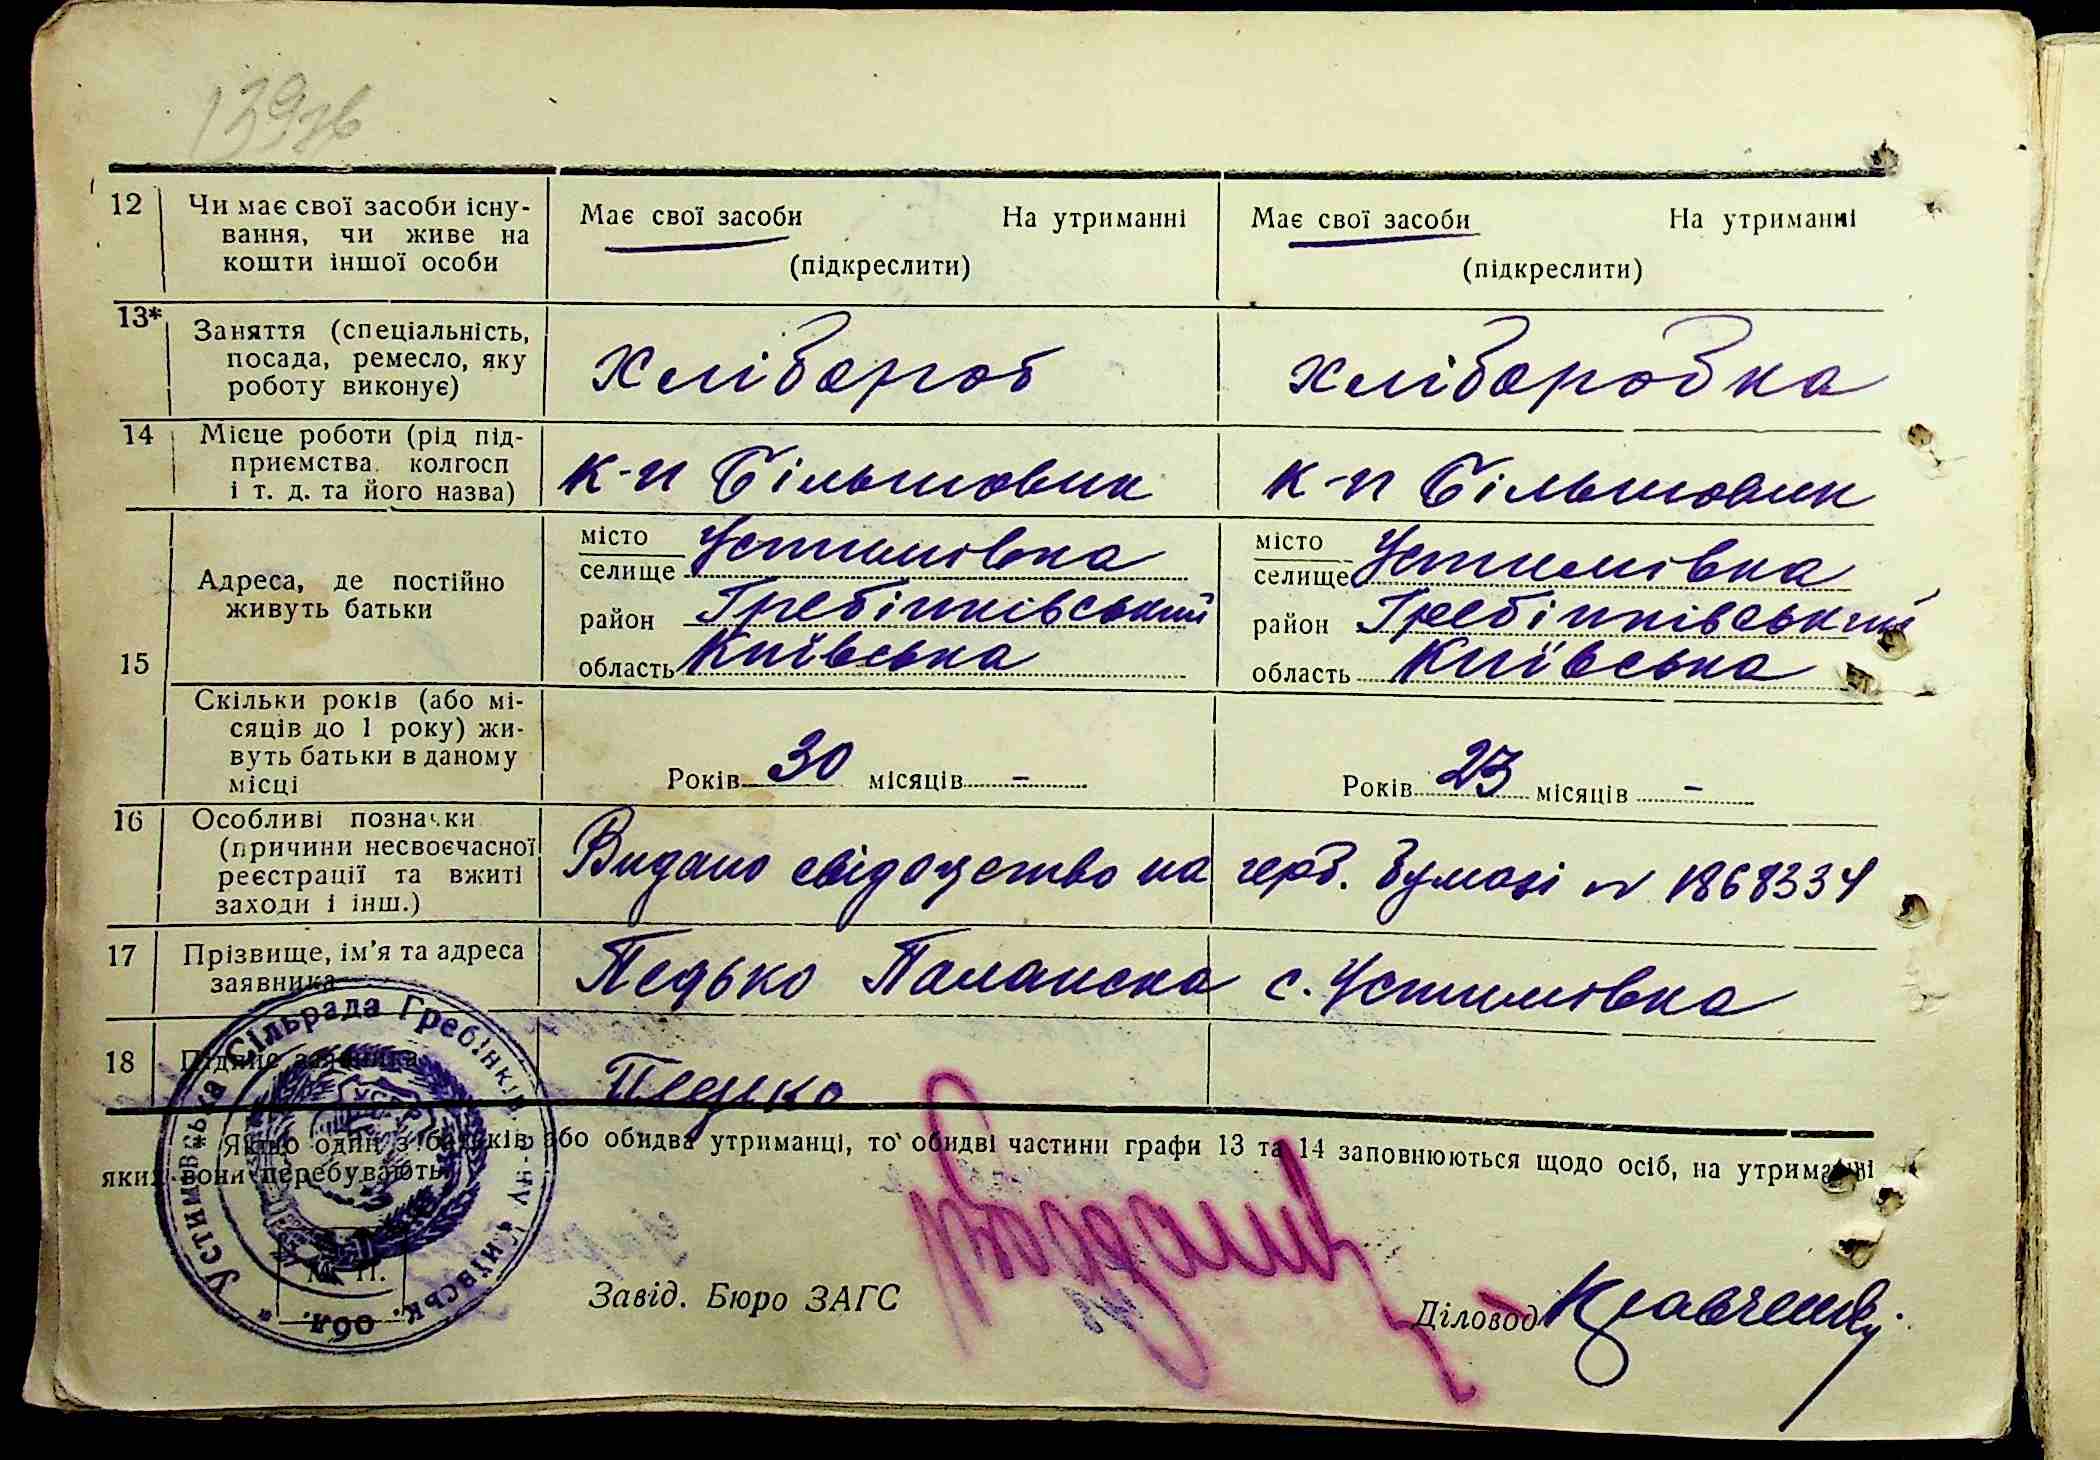 139зв
12 Чи має свої засоби існу- Має свої засоби На утриманні Має свої засоби На утриманні
вання, чи живе на
кошти іншої особи (підкреслити) (підкреслити)
13* Заняття (спеціальність,
посада, ремесло, яку хлібороб хліборобка
роботу виконує)
14 Місце роботи (рід під-
приємства, колгосп к-п Більшовик к-п Більшовик
і т. д. та його назва)
15 Адреса, де постійно
живуть батьки
місто
селище Устимівка
район Гребінківський
область Київська
місто
селище Устимівка
район Гребінківський
область Київська
Скільки років (або мі-
сяців до 1 року) жи-
вуть батьки в даному
місці
Років 30 місяців – Років 23 місяців –
16 Особливі позначки
(причини несвоєчасної
реєстрації та вжиті
заходи і інш.)
Видано свідоцтво на герб. бумазі № 1868334
17 Прізвище, ім’я та адреса
заявника
Педько Паланска с. Устимовка
18 Підпис заявника Педько
* Якщо один з батьків або обидва утриманці, то обидві частини графи 13 та 14 заповнюються щодо осіб, на утриманні
яких вони перебувають.
Устимівська Сільрада Гребінків. р-ну Київськ. обл.
УСРР
М. П.
Завід. Бюро ЗАГС
Діловод Кравченко